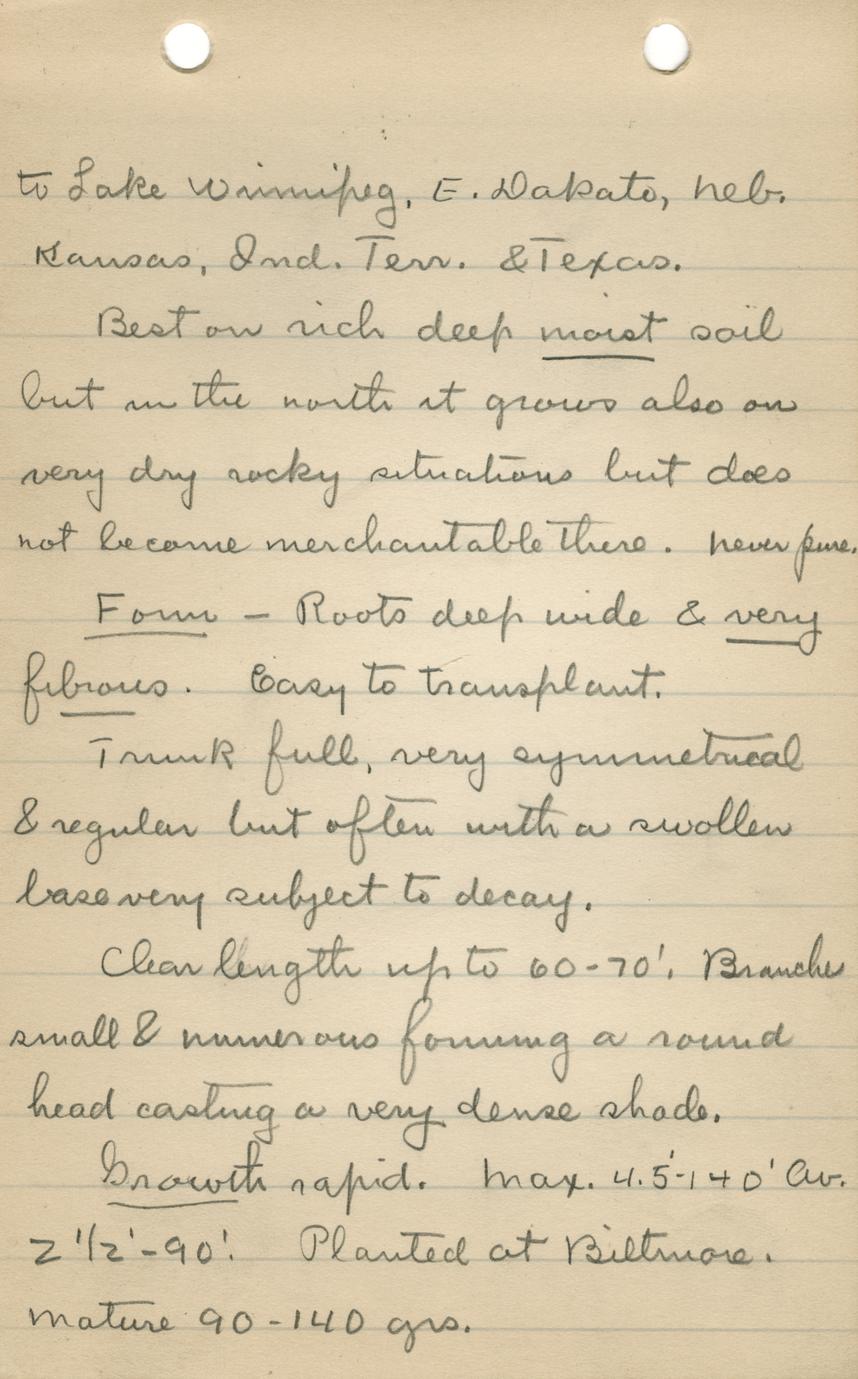 to Lake Winnipeg, E. Dakato, Neb.
Kansas, Ind. Terr. & Texas.
Best on rich deep moist soil
but in the north it grows also on
very dry rocky situations but does
not become merchantable there. Never pure.
Form – Roots deep wide & very
fibrous. Easy to transplant.
Trunk full, very symmetrical
& regular but often with a swollen
base very subject to decay.
Clear length up to 60-70'. Branches
small & numerous forming a round
head casting a very dense shade.
Growth rapid. Max. 4.5'-140' Av.
2 1/2'-90'. Planted at Biltmore.
Mature 90-140 yrs.